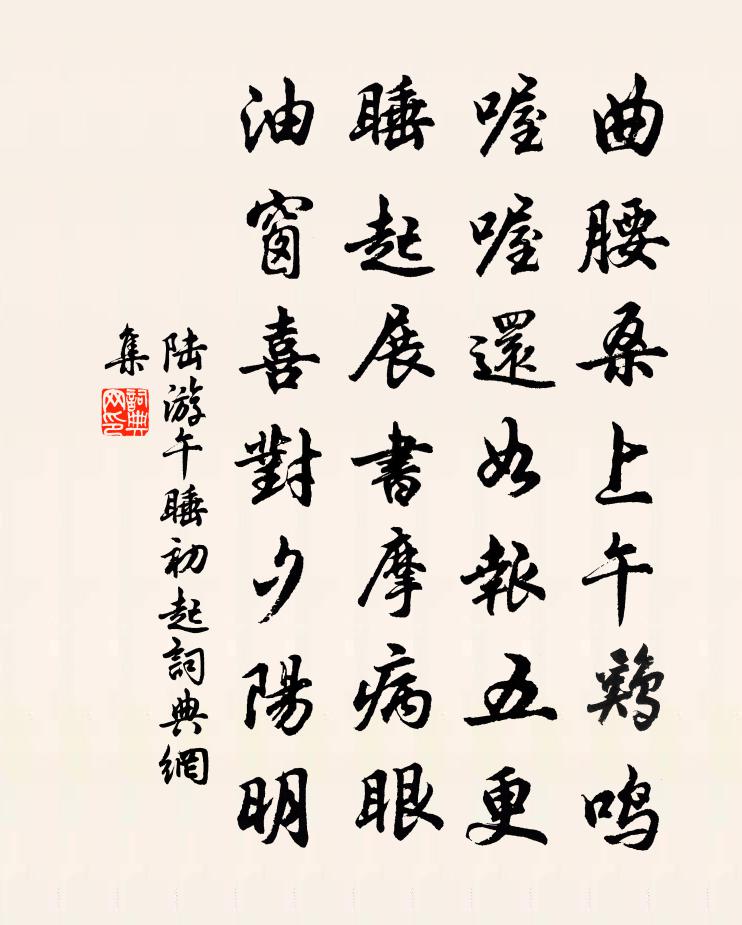 曲腰桑上午鷄鳴
喔喔還如報五更
睡起展書摩病眼
油窗喜對夕陽明
陆游午睡初起詞典網
集
詞典
网印